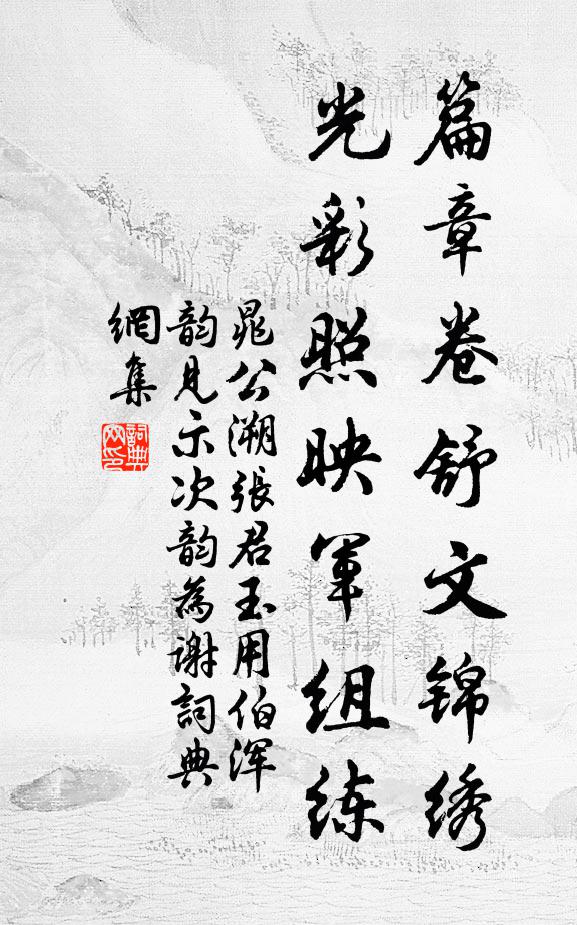 篇章卷舒文锦绣
光彩照映军组练
晁公溯張君玉用伯浑
韵見示次韵為谢詞典
網集
詞典
网印